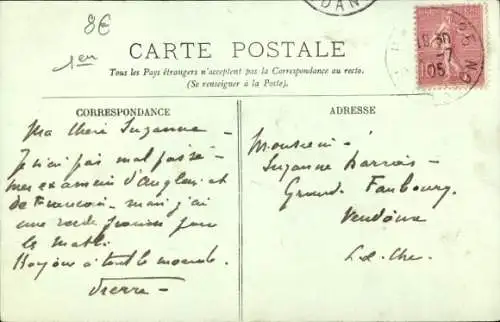 8€
1en
CARTE POSTALE
Tous les Pays étrangers n'acceptent pas la Correspondance au recto.
(Se renseigner à la Poste).
CORRESPONDANCE
ADRESSE
Ma chère Suzanne —
Je n'ai pas mal passé
mes examens d'Anglais et
de Français — mais j'ai
une
le
à tout le monde.
Pierre —
Monsieur
Suzanne
Grand Faubourg.
Vendôme
L. et Cher.
DAN
18 30
7
05